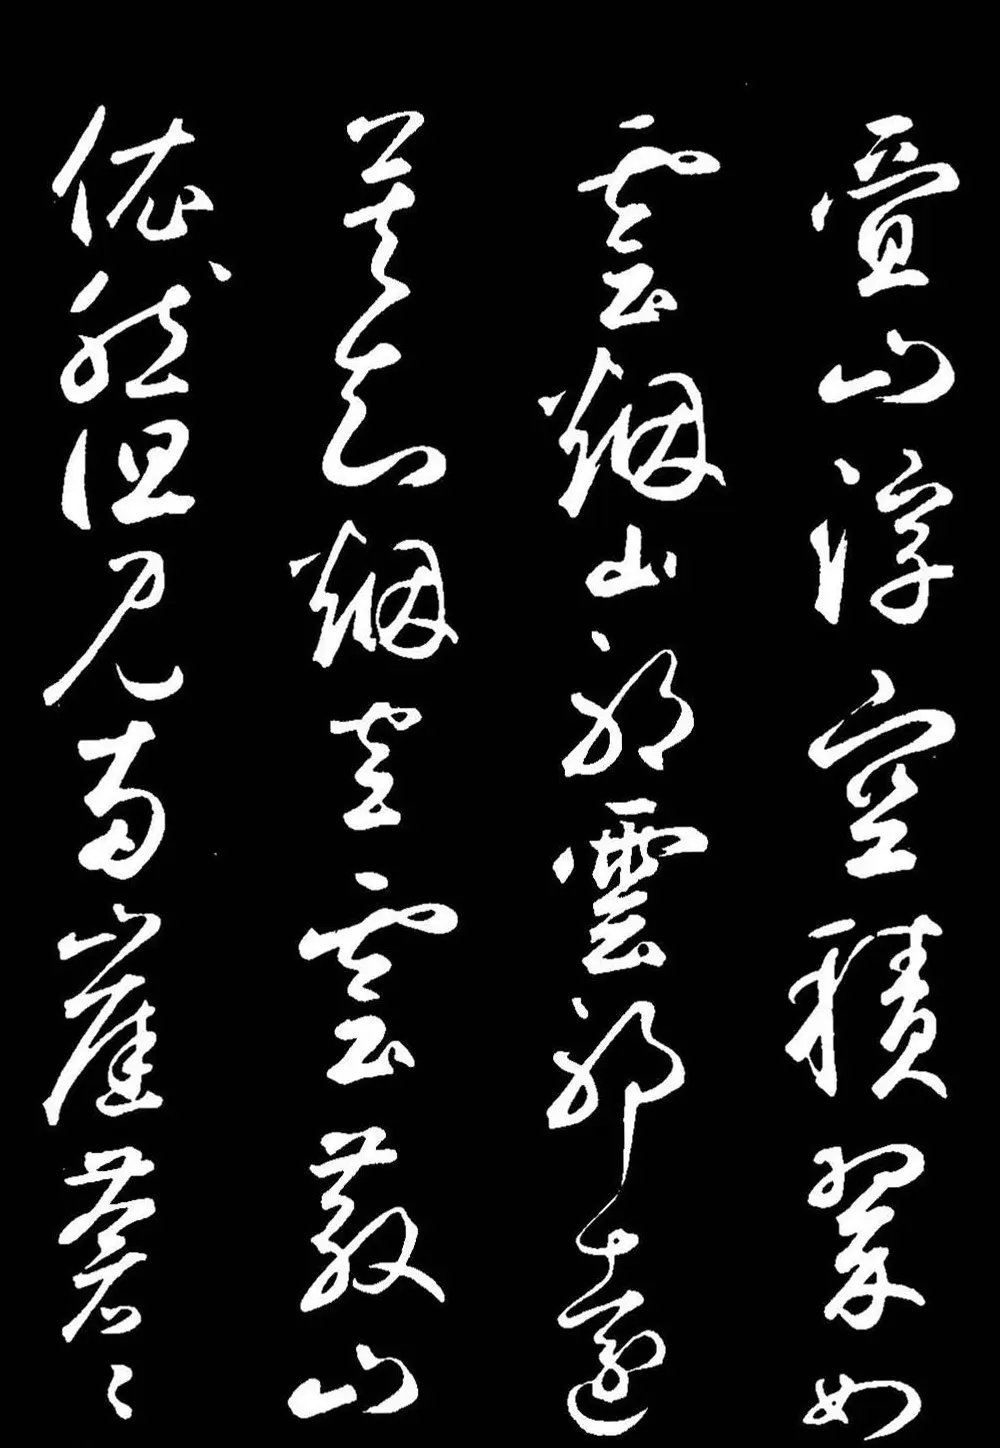 疊山浮空積翠如
雲烟山耶雲耶遠
莫知烟空雲散山
依然但見兩崖蒼〻